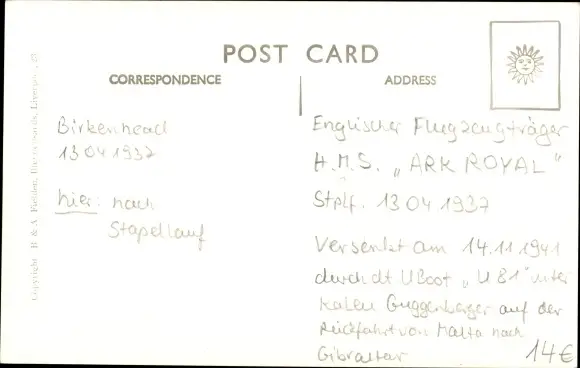 POST CARD
CORRESPONDENCE
ADDRESS
Birkenhead
13 04 1937
hier: nach
Stapellauf
Englischer Flugzeugträger
H.M.S. „ARK ROYAL"
Stplf. 13 04 1937
Versenkt am 14.11.1941
durch dt UBoot „U 81" unter
KaLeu Guggenberger auf der
Rückfahrt von Malta nach
Gibraltar
14€
Copyright B & A Feilden, Liverpool, 23